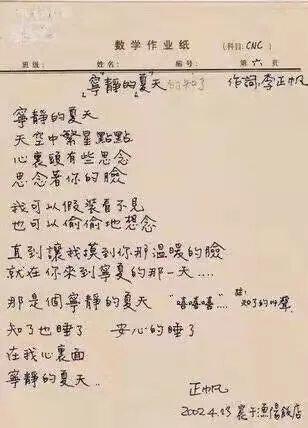 数学作业纸 (科目: CNC)
班级： 姓名： 编号： 第六页
「寧靜的夏天」的知了 作詞：李正帆
寧靜的夏天
天空中繁星點點
心裏頭有些思念
思念著你的臉
我可以假裝看不見
也可以偷偷地想念
直到讓我摸到你那溫暖的臉
就在你來到寧夏的那一天....
那是個寧靜的夏天 “嘻嘻嘻”... 註：知了的叫聲
知了也睡了 安心的睡了
在我心裏面
寧靜的夏天..
正帆
2002.4.13 寫于漁陽飯店